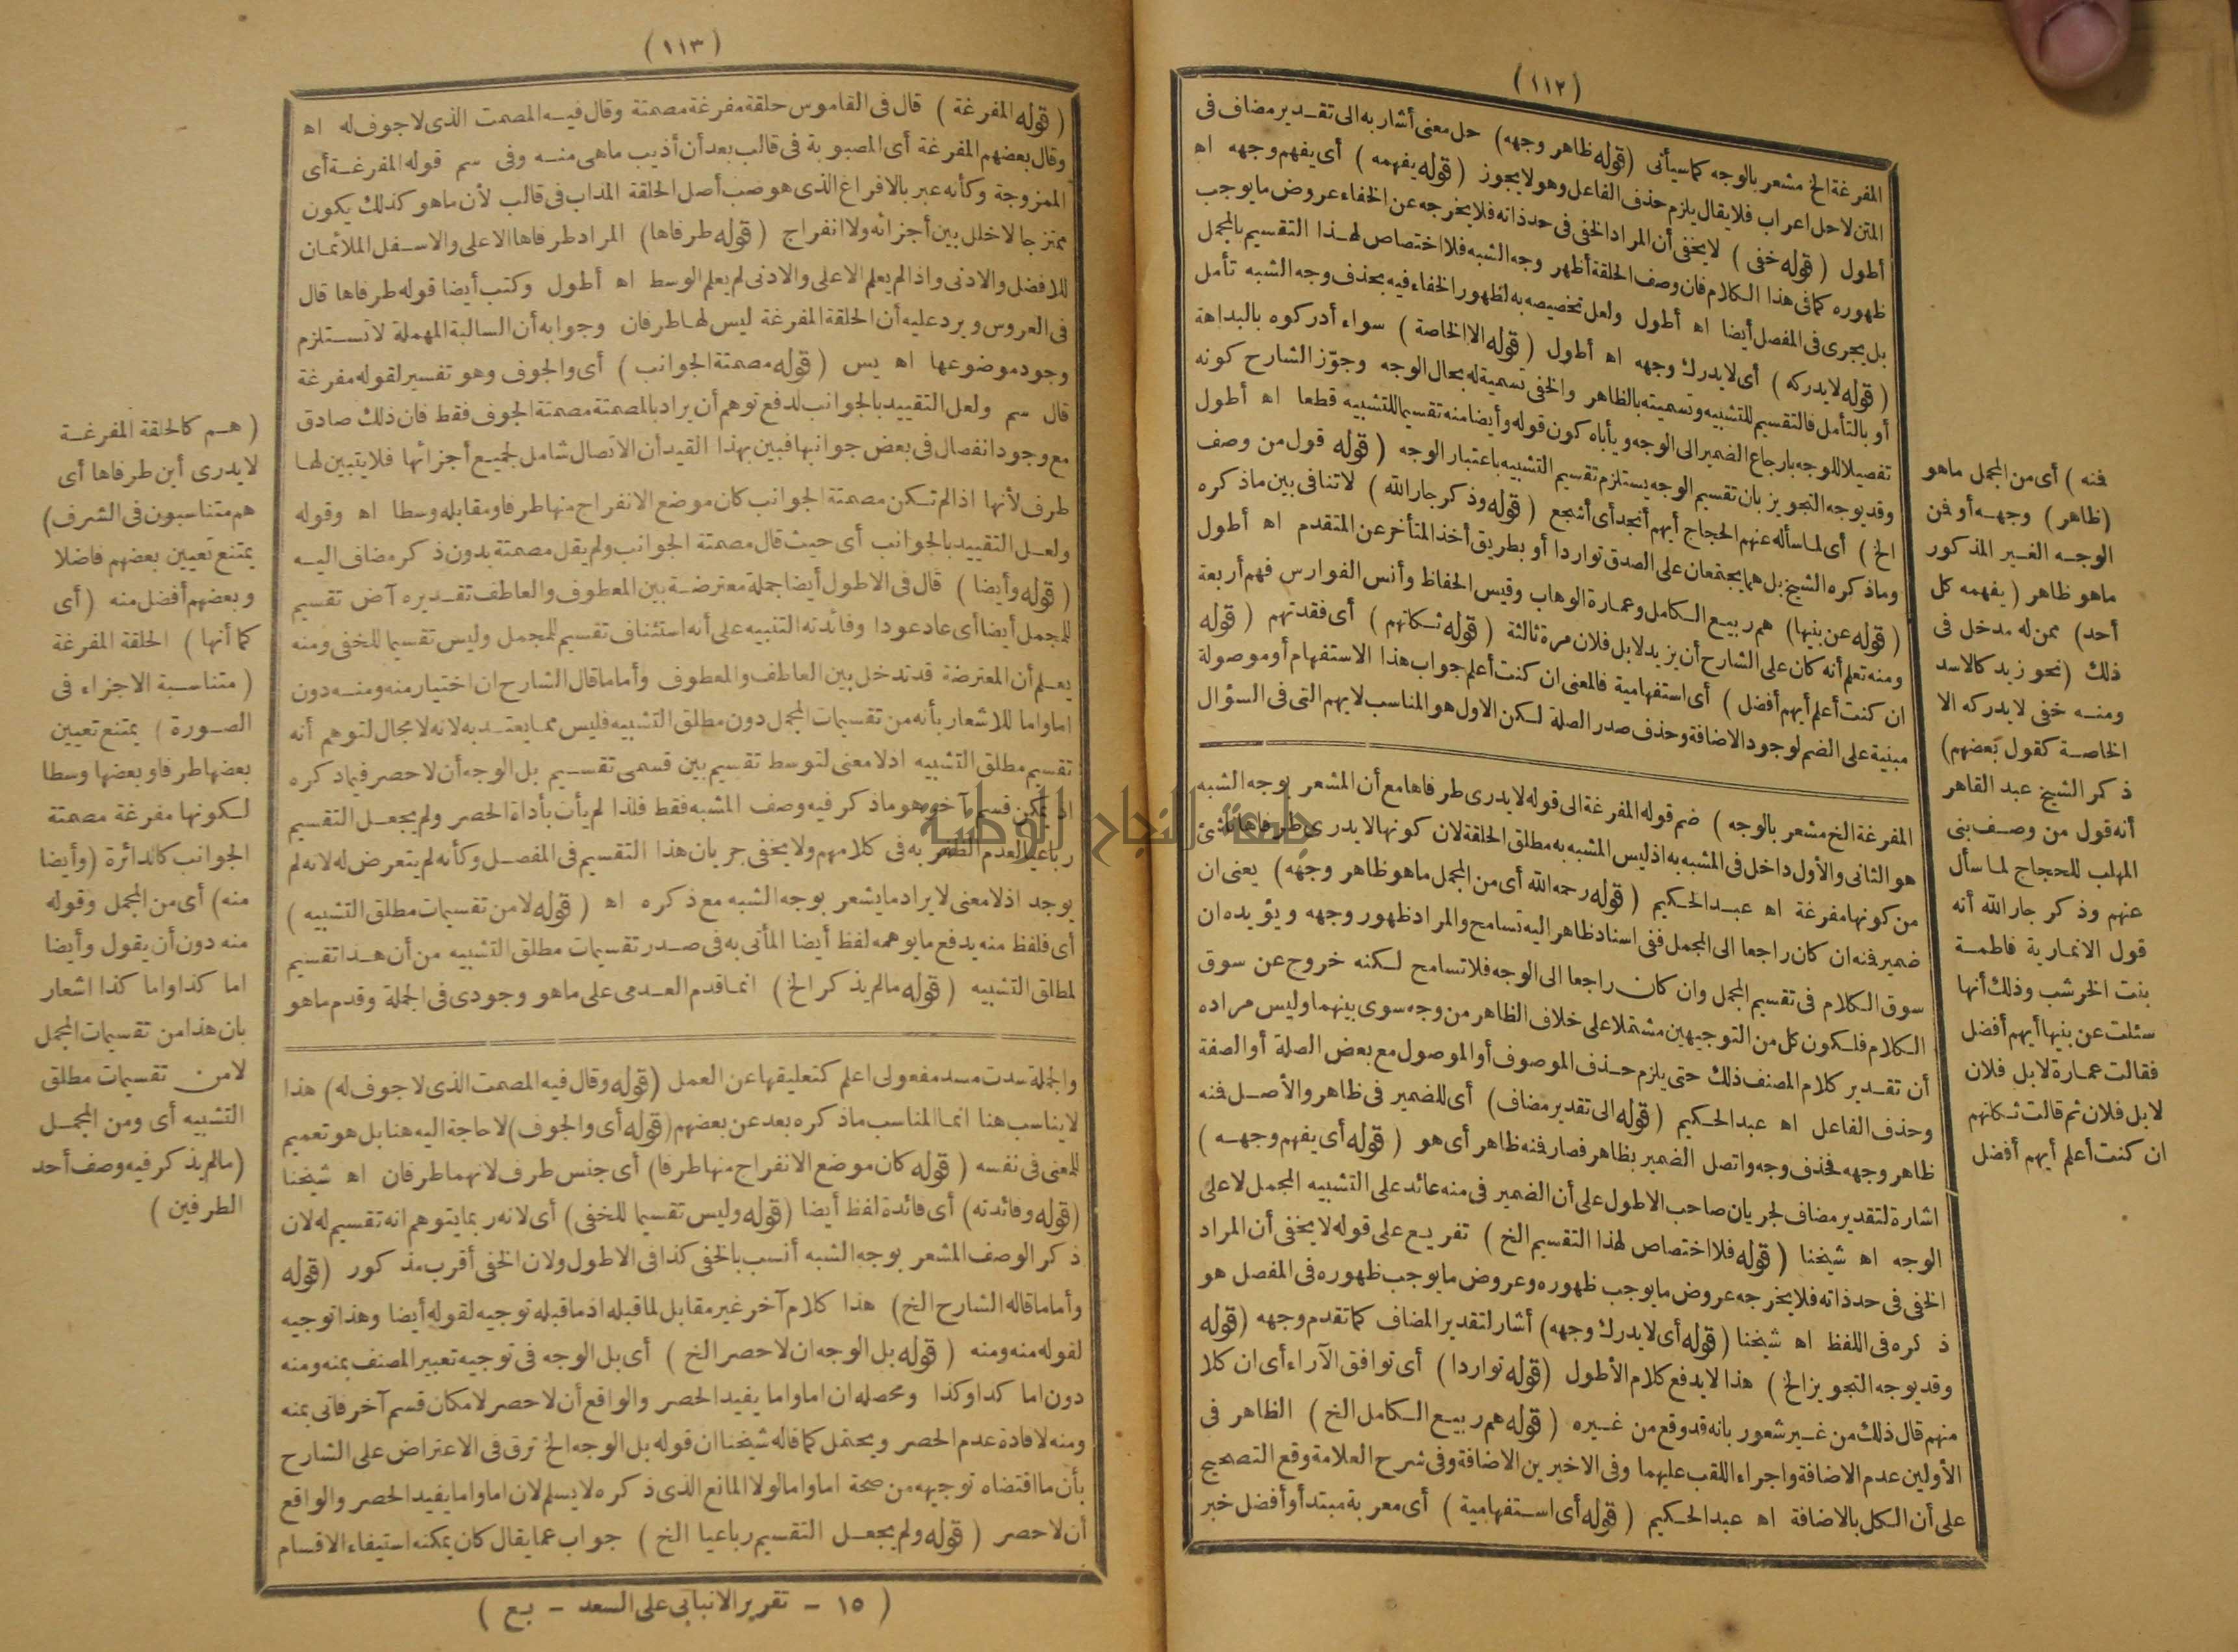 (١١٢)
المفرغة الخ مشعر بالوجه كما سيأتى (قوله ظاهر وجهه) حل معنى أشار به الى تقدير مضاف فى
المتن لا حل اعراب فلا يقال يلزم حذف الفاعل وهو لا يجوز (قوله يفهمه) أى يفهم وجهه اه
أطول (قوله خفى) لا يخفى أن المراد الخفى فى حد ذاته فلا يخرجه عن الخفاء عروض ما يوجب
ظهوره كما فى هذا الكلام فان وصف الحلقة أظهر وجه الشبه فلا اختصاص لهذا التقسيم بالمجمل
بل يجرى فى المفصل أيضا اه أطول ولعل تخصيصه به لظهور الخفاء فيه بحذف وجه الشبه تأمل
(قوله لا يدركه) أى لا يدرك وجهه اه أطول (قوله الا الخاصة) سواء أدركوه بالبداهة
أو بالتأمل فالتقسيم للتشبيه وتسميته بالظاهر والخفى تسمية له بحال الوجه وجوّز الشارح كونه
تفصيلا للوجه بارجاع الضمير الى الوجه ويأباه كون قوله وأيضا منه تقسيما للتشبيه قطعا اه أطول
وقد يوجه التجويز بان تقسيم الوجه يستلزم تقسيم التشبيه باعتبار الوجه (قوله قول من وصف
الخ) أى لما سأله عنهم الحجاج أيهم أنجد أى أشجع (قوله وذكر جار الله) لا تنافى بين ما ذكره
وما ذكره الشيخ بل هما يجتمعان على الصدق تواردا أو بطريق أخذ المتأخر عن المتقدم اه أطول
(قوله عن بنيها) هم ربيع الكامل وعمارة الوهاب وقيس الحفاظ وأنس الفوارس فهم أربعة
ومنه تعلم أنه كان على الشارح أن يزيد لا بل فلان مرة ثالثة (قوله ثكلتهم) أى فقدتهم (قوله
ان كنت أعلم أيهم أفضل) أى استفهامية فالمعنى ان كنت أعلم جواب هذا الاستفهام أو موصولة
مبنية على الضم لوجود الاضافة وحذف صدر الصلة لكن الاول هو المناسب لايهم التى فى السؤال
المفرغة الخ مشعر بالوجه) ضم قوله المفرغة الى قوله لا يدرى طرفاها مع أن المشعر بوجه الشبه
هو الثانى والأول داخل فى المشبه به اذ ليس المشبه به مطلق الحلقة لان كونها لا يدرى طرفاها ناشئ
من كونها مفرغة اه عبد الحكيم (قوله رحمه الله أى من المجمل ما هو ظاهر وجهه) يعنى ان
ضمير فنه ان كان راجعا الى المجمل ففى اسناد ظاهر اليه تسامح والمراد ظهور وجهه ويؤيده ان
سوق الكلام فى تقسيم المجمل وان كان راجعا الى الوجه فلا تسامح لكنه خروج عن سوق
الكلام فلكون كل من التوجيهين مشتملا على خلاف الظاهر من وجه سوى بينهما وليس مراده
أن تقدير كلام المصنف ذلك حتى يلزم حذف الموصوف أو الموصول مع بعض الصلة أو الصفة
وحذف الفاعل اه عبد الحكيم (قوله الى تقدير مضاف) أى للضمير فى ظاهر والأصل فنه
ظاهر وجهه فحذف وجه واتصل الضمير بظاهر فصار فنه ظاهر أى هو (قوله أى يفهم وجهه)
اشارة لتقدير مضاف لجريان صاحب الاطول على أن الضمير فى منه عائد على التشبيه المجمل لا على
الوجه اه شيخنا (قوله فلا اختصاص لهذا التقسيم الخ) تفريع على قوله لا يخفى أن المراد
الخفى فى حد ذاته فلا يخرجه عروض ما يوجب ظهوره وعروض ما يوجب ظهوره فى المفصل هو
ذكره فى اللفظ اه شيخنا (قوله أى لا يدرك وجهه) أشار لتقدير المضاف كما تقدم وجهه (قوله
وقد يوجه التجويز الخ) هذا لا يدفع كلام الأطول (قوله تواردا) أى توافق الآراء أى ان كلا
منهم قال ذلك من غير شعور بانه قد وقع من غيره (قوله هم ربيع الكامل الخ) الظاهر فى
الأولين عدم الاضافة واجراء اللقب عليهما وفى الاخيرين الاضافة وفى شرح العلامة وقع التصحيح
على أن الكل بالاضافة اه عبد الحكيم (قوله أى استفهامية) أى معربة مبتدأ وأفضل خبر
فنه) أى من المجمل ما هو
(ظاهر) وجهه أو فن
الوجه الغير المذكور
ما هو ظاهر (يفهمه كل
أحد) ممن له مدخل فى
ذلك (نحو زيد كالاسد
ومنه خفى لا يدركه الا
الخاصة كقول بعضهم)
ذكر الشيخ عبد القاهر
أنه قول من وصف بنى
المهلب للحجاج لما سأل
عنهم وذكر جار الله أنه
قول الانمارية فاطمة
بنت الخرشب وذلك أنها
سئلت عن بنيها أيهم أفضل
فقالت عمارة لا بل فلان
لا بل فلان ثم قالت ثكلتهم
ان كنت أعلم أيهم أفضل
(١١٣)
(قوله المفرغة) قال فى القاموس حلقة مفرغة مصمتة وقال فيه المصمت الذى لا جوف له اه
وقال بعضهم المفرغة أى المصبوبة فى قالب بعد أن أذيب ما هى منه وفى سم قوله المفرغة أى
الممزوجة وكأنه عبر بالافراغ الذى هو صب أصل الحلقة المذاب فى قالب لأن ما هو كذلك يكون
ممتزجا لا خلل بين أجزائه ولا انفراج (قوله طرفاها) المراد طرفاها الاعلى والاسفل الملائمان
للافضل والادنى واذا لم يعلم الاعلى والادنى لم يعلم الوسط اه أطول وكتب أيضا قوله طرفاها قال
فى العروس ويرد عليه أن الحلقة المفرغة ليس لها طرفان وجوابه أن السالبة المهملة لا تستلزم
وجود موضوعها اه يس (قوله مصمتة الجوانب) أى والجوف وهو تفسير لقوله مفرغة
قال سم ولعل التقييد بالجوانب لدفع توهم أن يراد بالمصمتة مصمتة الجوف فقط فان ذلك صادق
مع وجود انفصال فى بعض جوانبها فبين بهذا القيد أن الاتصال شامل لجميع أجزائها فلا يتبين لها
طرف لأنها اذا لم تكن مصمتة الجوانب كان موضع الانفراج منها طرفا ومقابله وسطا اه وقوله
ولعل التقييد بالجوانب أى حيث قال مصمتة الجوانب ولم يقل مصمتة بدون ذكر مضاف اليه
(قوله وأيضا) قال فى الاطول أيضا جملة معترضة بين المعطوف والعاطف تقديره آض تقسيم
للمجمل أيضا أى عاد عودا وفائدته التنبيه على أنه استئناف تقسيم للمجمل وليس تقسيما للخفى ومنه
يعلم أن المعترضة قد تدخل بين العاطف والمعطوف وأما ما قال الشارح ان اختيار منه ومنه دون
اما واما للاشعار بأنه من تقسيمات المجمل دون مطلق التشبيه فليس مما يعتد به لانه لا مجال لتوهم أنه
تقسيم مطلق التشبيه اذ لا معنى لتوسط تقسيم بين قسمى تقسيم بل الوجه أن لا حصر فيما ذكره
اذ يمكن قسم آخر هو ما ذكر فيه وصف المشبه فقط فلذا لم يأت بأداة الحصر ولم يجعل التقسيم
رباعيا لعدم الظفر به فى كلامهم ولا يخفى جريان هذا التقسيم فى المفصل وكأنه لم يتعرض له لانه لم
يوجد اذ لا معنى لايراد ما يشعر بوجه الشبه مع ذكره اه (قوله لا من تقسيمات مطلق التشبيه)
أى فلفظ منه يدفع ما يوهمه لفظ أيضا المأتى به فى صدر تقسيمات مطلق التشبيه من أن هذا تقسيم
لمطلق التشبيه (قوله ما لم يذكر الخ) انما قدم العدمى على ما هو وجودى فى الجملة وقدم ما هو
والجملة سدت مسد مفعولى اعلم كتعليقها عن العمل (قوله وقال فيه المصمت الذى لا جوف له) هذا
لا يناسب هنا انما المناسب ما ذكره بعد عن بعضهم (قوله أى والجوف) لا حاجة اليه هنا بل هو تعميم
للمعنى فى نفسه (قوله كان موضع الانفراج منها طرفا) أى جنس طرف لانهما طرفان اه شيخنا
(قوله وفائدته) أى فائدة لفظ أيضا (قوله وليس تقسيما للخفى) أى لانه ربما يتوهم انه تقسيم له لان
ذكر الوصف المشعر بوجه الشبه أنسب بالخفى كذا فى الاطول ولان الخفى أقرب مذكور (قوله
وأما ما قاله الشارح الخ) هذا كلام آخر غير مقابل لما قبله اذ ما قبله توجيه لقوله أيضا وهذا توجيه
لقوله منه ومنه (قوله بل الوجه ان لا حصر الخ) أى بل الوجه فى توجيه تعبير المصنف بمنه ومنه
دون اما كذا وكذا ومحصله ان اما واما يفيد الحصر والواقع أن لا حصر لامكان قسم آخر فاتى بمنه
ومنه لافادة عدم الحصر ويحتمل كما قاله شيخنا ان قوله بل الوجه الخ ترق فى الاعتراض على الشارح
بأن ما اقتضاه توجيهه من صحة اما واما لولا المانع الذى ذكره لا يسلم لان اما واما يفيد الحصر والواقع
أن لا حصر (قوله ولم يجعل التقسيم رباعيا الخ) جواب عما يقال كان يمكنه استيفاء الاقسام
(هم كالحلقة المفرغة
لا يدرى أين طرفاها أى
هم متناسبون فى الشرف)
يمتنع تعيين بعضهم فاضلا
وبعضهم أفضل منه (أى
كما أنها) الحلقة المفرغة
(متناسبة الاجزاء فى
الصورة) يمتنع تعيين
بعضها طرفا وبعضها وسطا
لكونها مفرغة مصمتة
الجوانب كالدائرة (وأيضا
منه) أى من المجمل وقوله
منه دون أن يقول وأيضا
اما كذا واما كذا اشعار
بان هذا من تقسيمات المجمل
لا من تقسيمات مطلق
التشبيه أى ومن المجمل
(ما لم يذكر فيه وصف أحد
الطرفين)
(١٥ - تقرير الانبابى على السعد - بع)
جامعة النجاح الوطنية